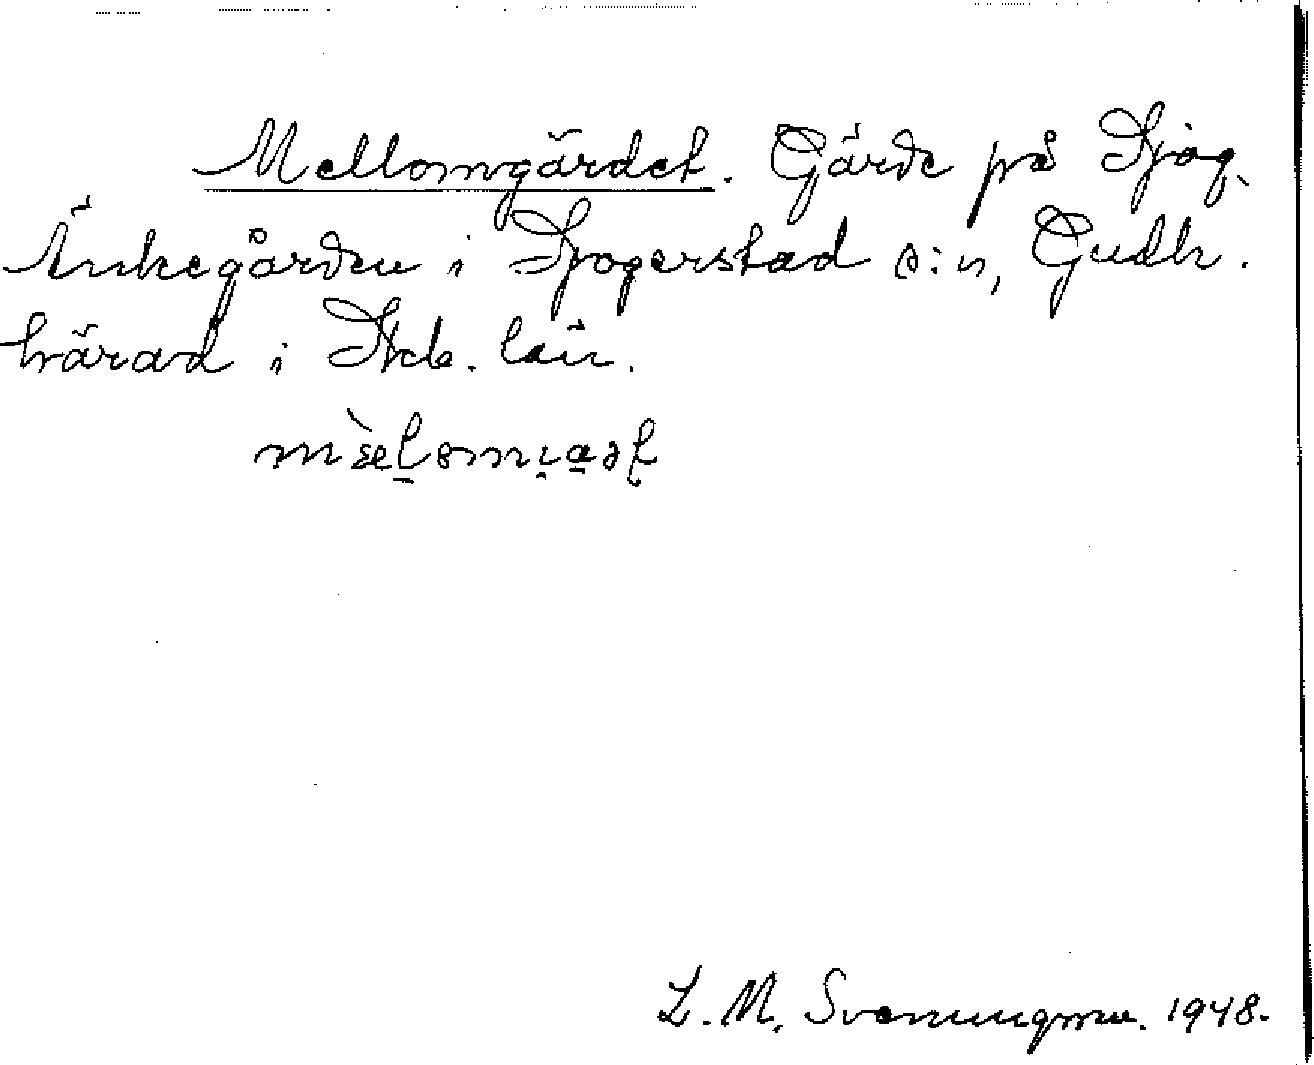 Mellomgärdet. Gärde på Sjog.
Änkegården i Sjogerstad s:n, Gudh.
härad i Skb. län.
L. M. Svenungsson. 1948.